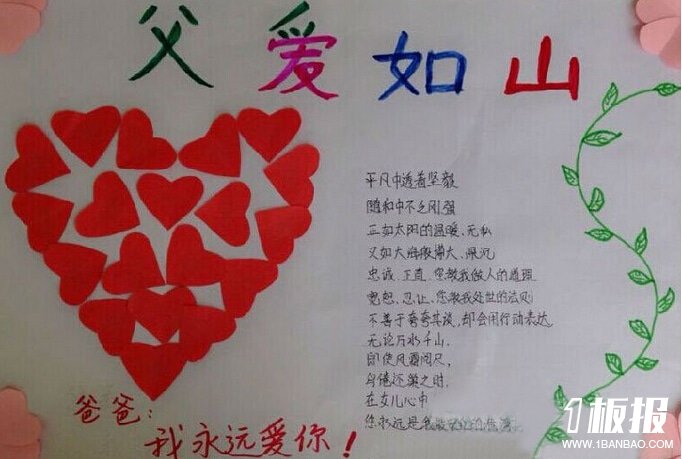 父爱如山
平凡中透着坚毅
随和中不乏刚强
正如太阳的温暖、无私
又如大海般博大、深沉
忠诚、正直、您教我做人的道理
宽恕、忍让、您教我处世的法则
不善于夸夸其谈，却会用行动表达
无论万水千山，
即使风霜
倦还巢之时，
在女儿心中
您永远是我最
爸爸：
我永远爱你！
板报
WWW.1BANBAO.COM